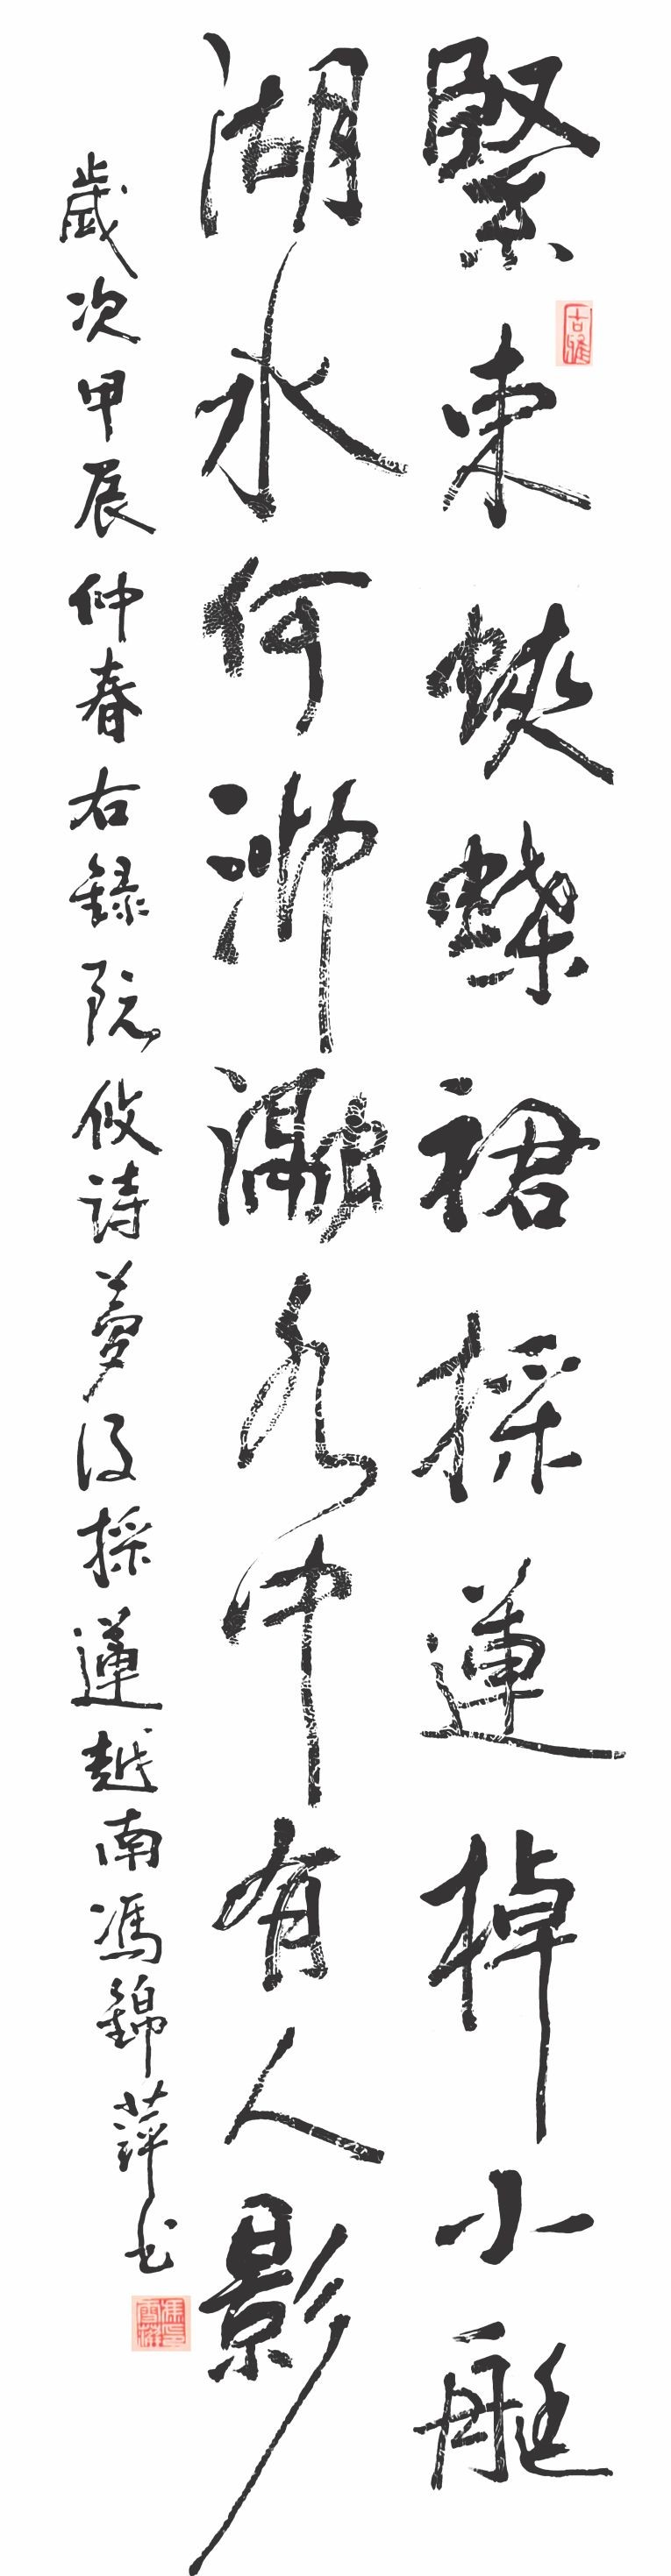 緊束蛺蝶裙採蓮棹小艇
湖水何沖瀜水中有人影
歲次甲辰仲春右錄阮攸詩夢得採蓮越南馮錦萍书
吉雅